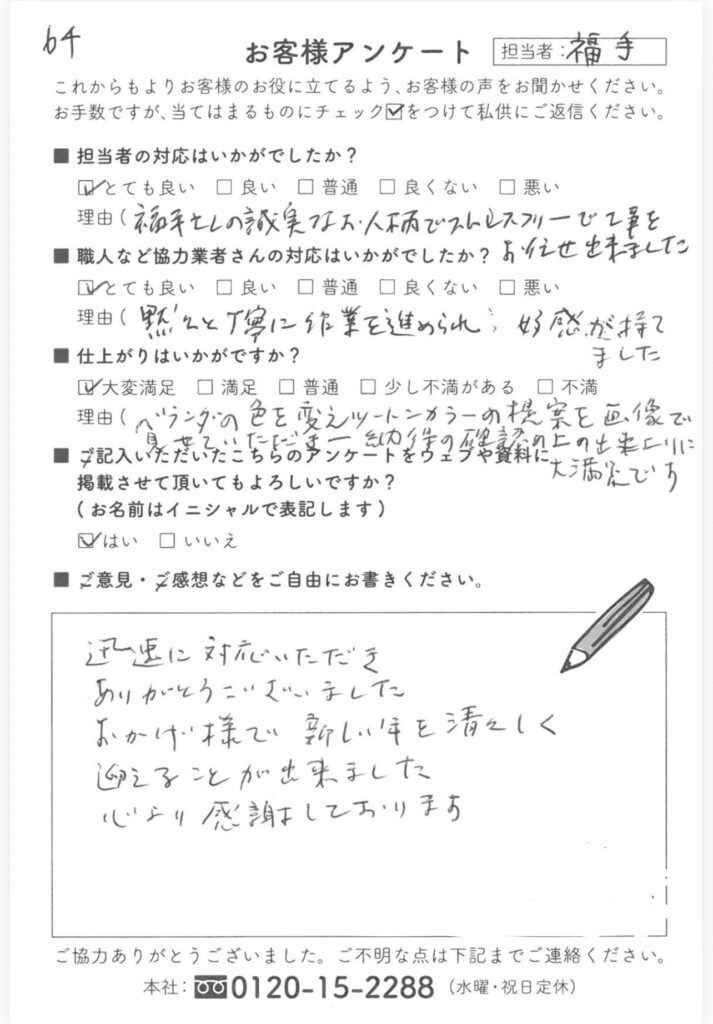 64
お客様アンケート 担当者: 福手
これからもよりお客様のお役に立てるよう、お客様の声をお聞かせください。
お手数ですが、当てはまるものにチェック☑をつけて私供にご返信ください。
■ 担当者の対応はいかがでしたか？
☑とても良い □ 良い □ 普通 □ 良くない □ 悪い
理由（福手さんの誠実なお人柄でストレスフリーで工事を
お任せ出来ました
■ 職人など協力業者さんの対応はいかがでしたか？
☑とても良い □ 良い □ 普通 □ 良くない □ 悪い
理由（黙々と丁寧に作業を進められ、好感が持て
ました
■ 仕上がりはいかがですか？
☑大変満足 □ 満足 □ 普通 □ 少し不満がある □ 不満
理由（ベランダの色を変えツートンカラーの提案を画像で
見せていただき 納得の確認の上の出来上りに
大満足です
■ ご記入いただいたこちらのアンケートをウェブや資料に
掲載させて頂いてもよろしいですか？
（お名前はイニシャルで表記します）
☑はい □ いいえ
■ ご意見・ご感想などをご自由にお書きください。
迅速に対応いただき
ありがとうございました
おかげ様で 新しい年を清々しく
迎えることが出来ました
心より感謝しております
ご協力ありがとうございました。ご不明な点は下記までご連絡ください。
本社: 0120-15-2288（水曜・祝日定休）